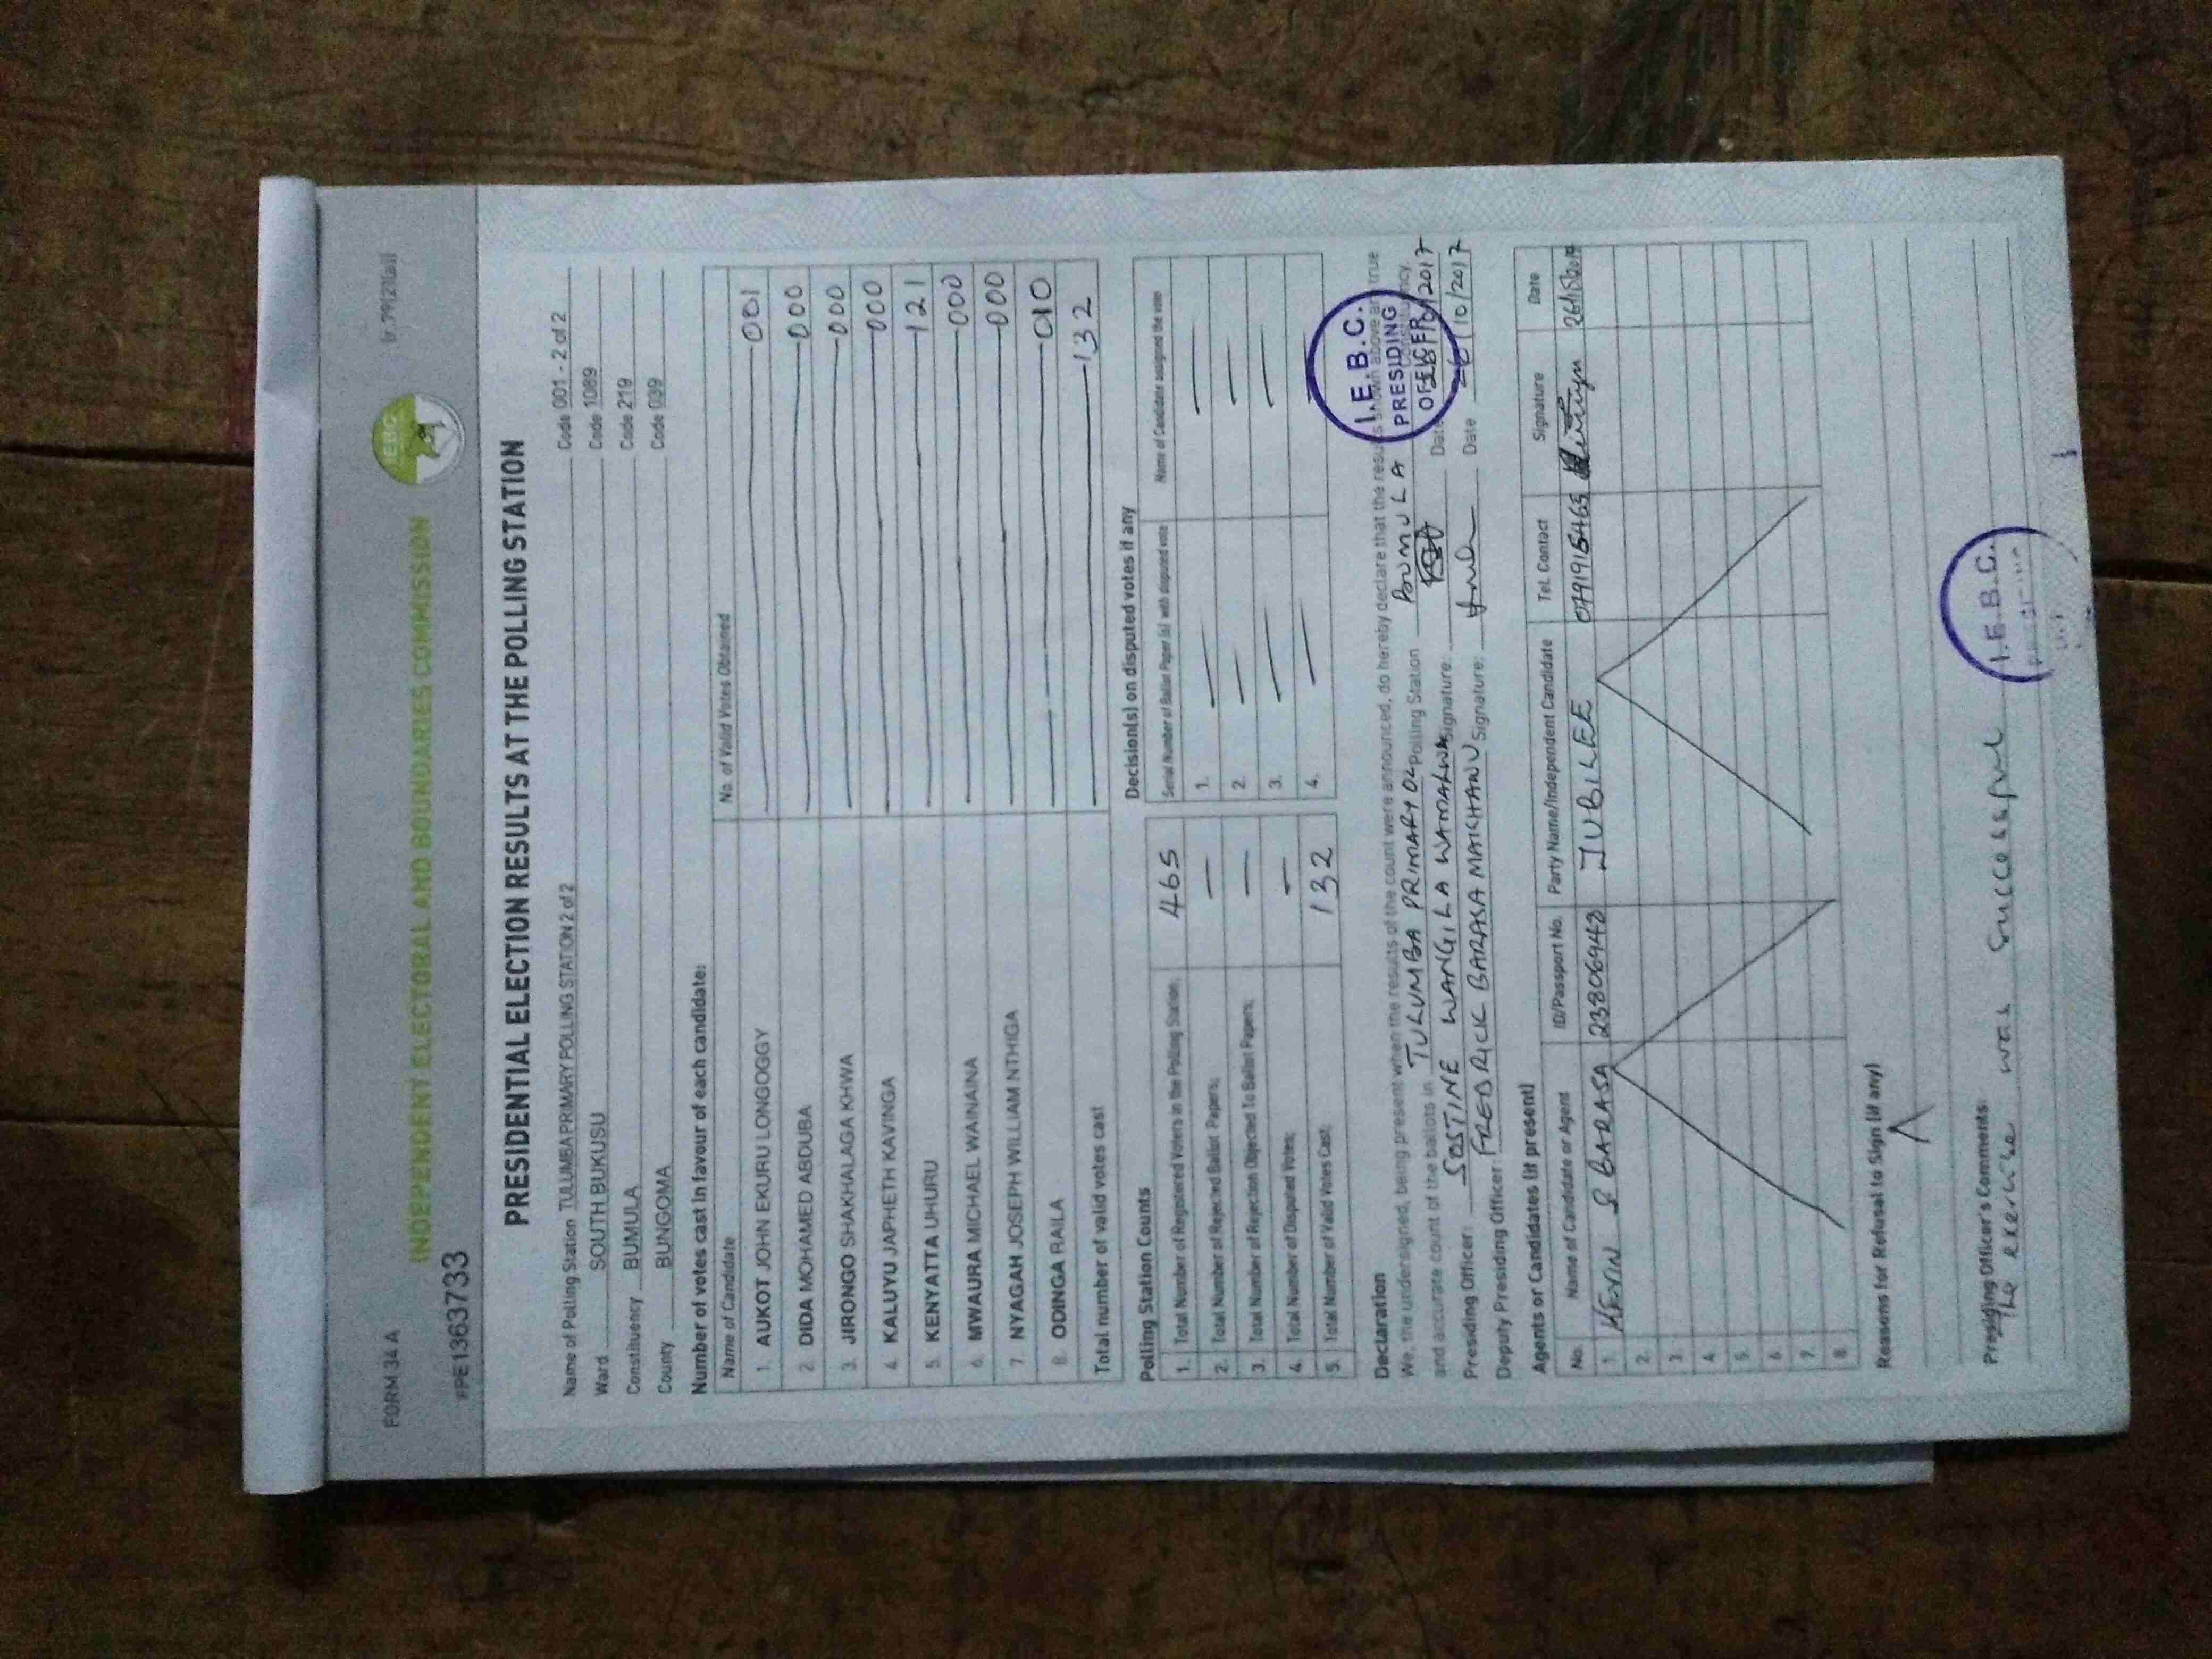 FORM 34 A
(r. 79(2)(a))
IEBC
INDEPENDENT ELECTORAL AND BOUNDARIES COMMISSION
#PE1363733
PRESIDENTIAL ELECTION RESULTS AT THE POLLING STATION
Name of Polling Station TULUMBA PRIMARY POLLING STATION 2 of 2 Code 001 - 2 of 2
Ward SOUTH BUKUSU Code 1089
Constituency BUMULA Code 219
County BUNGOMA Code 039
Number of votes cast in favour of each candidate:
Name of Candidate No. of Valid Votes Obtained
1. AUKOT JOHN EKURU LONGOGGY 001
2. DIDA MOHAMED ABDUBA 000
3. JIRONGO SHAKHALAGA KHWA 000
4. KALUYU JAPHETH KAVINGA 000
5. KENYATTA UHURU 121
6. MWAURA MICHAEL WAINAINA 000
7. NYAGAH JOSEPH WILLIAM NTHIGA 000
8. ODINGA RAILA 010
Total number of valid votes cast 132
Polling Station Counts
1. Total Number of Registered Voters in the Polling Station; 465
2. Total Number of Rejected Ballot Papers; —
3. Total Number of Rejection Objected To Ballot Papers; —
4. Total Number of Disputed Votes; —
5. Total Number of Valid Votes Cast; 132
Decision(s) on disputed votes if any
Serial Number of Ballot Paper (s) with disputed vote Name of Candidate assigned the vote
1.
2.
3.
4.
Declaration
We, the undersigned, being present when the results of the count were announced, do hereby declare that the results shown above are true
and accurate count of the ballots in TULUMBA PRIMARY 02 Polling Station BUMULA Constituency.
Presiding Officer: SOSTINE WANGILA WAMALWA Signature: Date /10/2017
Deputy Presiding Officer: FREDRICK BARASA MAKHANU Signature: Date 26/10/2017
I.E.B.C.
PRESIDING
OFFICER
Agents or Candidates (if present)
No. Name of Candidate or Agent ID/Passport No. Party Name/Independent Candidate Tel. Contact Signature Date
1. KEVIN S BARASA 23806948 JUBILEE 0719154465
2.
3.
4.
5.
6.
7.
8.
Reasons for Refusal to Sign (if any)
Presiding Officer's Comments:
The exercise was successful
I.E.B.C.